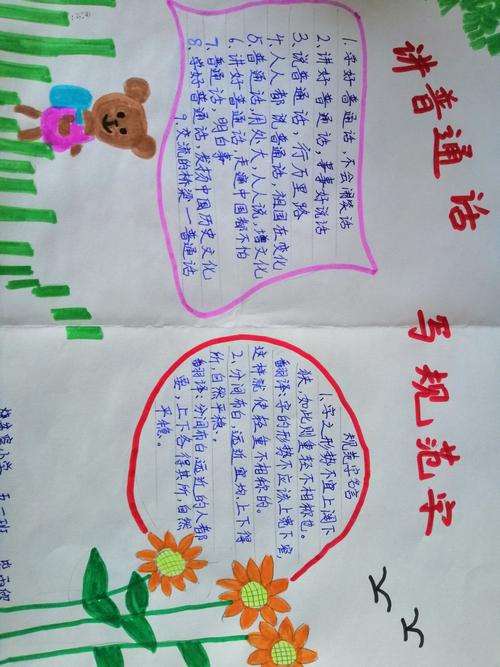 讲普通话 写规范字
1. 学好普通话,不会闹笑话
2. 讲好普通话,事事好说话
3. 说普通话,行万里路
4. 人人都说普通话,祖国在变化
5. 普通话用处大,人人说,增文化
6. 讲好普通话,走遍中国都不怕
7. 普通话,明白事
8. 学好普通话,发扬中国历史文化
9. 交流的桥梁一普通话
规范字名言
1.字之形势不宜上阔下
狭,如此则重轻不相称也。
翻译:字的形势不应该上宽下窄,
这样就使轻重不相称的。
2、分间布白,远近宜均,上下得
所,自然平稳。
翻译:分间布白远近的人都
要,上下各得其所,自然
平稳。
小学 五二班